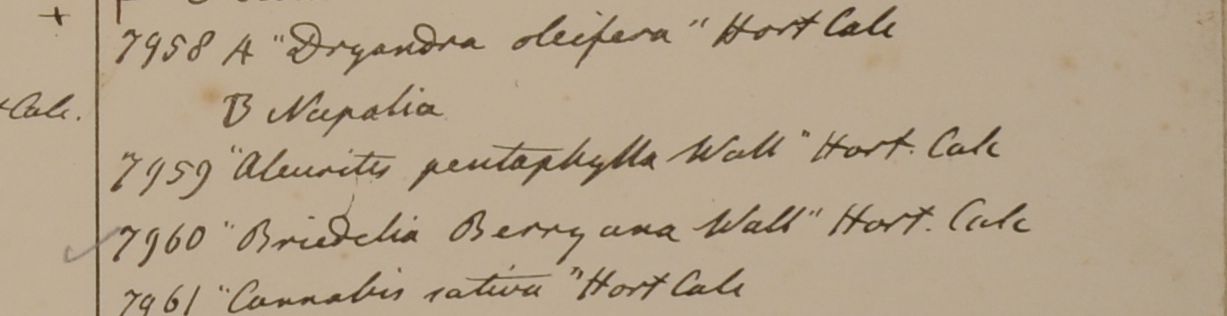 +
7958 A "Dryandra oleifera" Hort Calc
Calc.
B Napalia
7959 "Aleurites pentaphylla Wall" Hort. Calc
7960 "Briedelia Berryana Wall" Hort. Calc
7961 "Cannabis sativa" Hort Calc